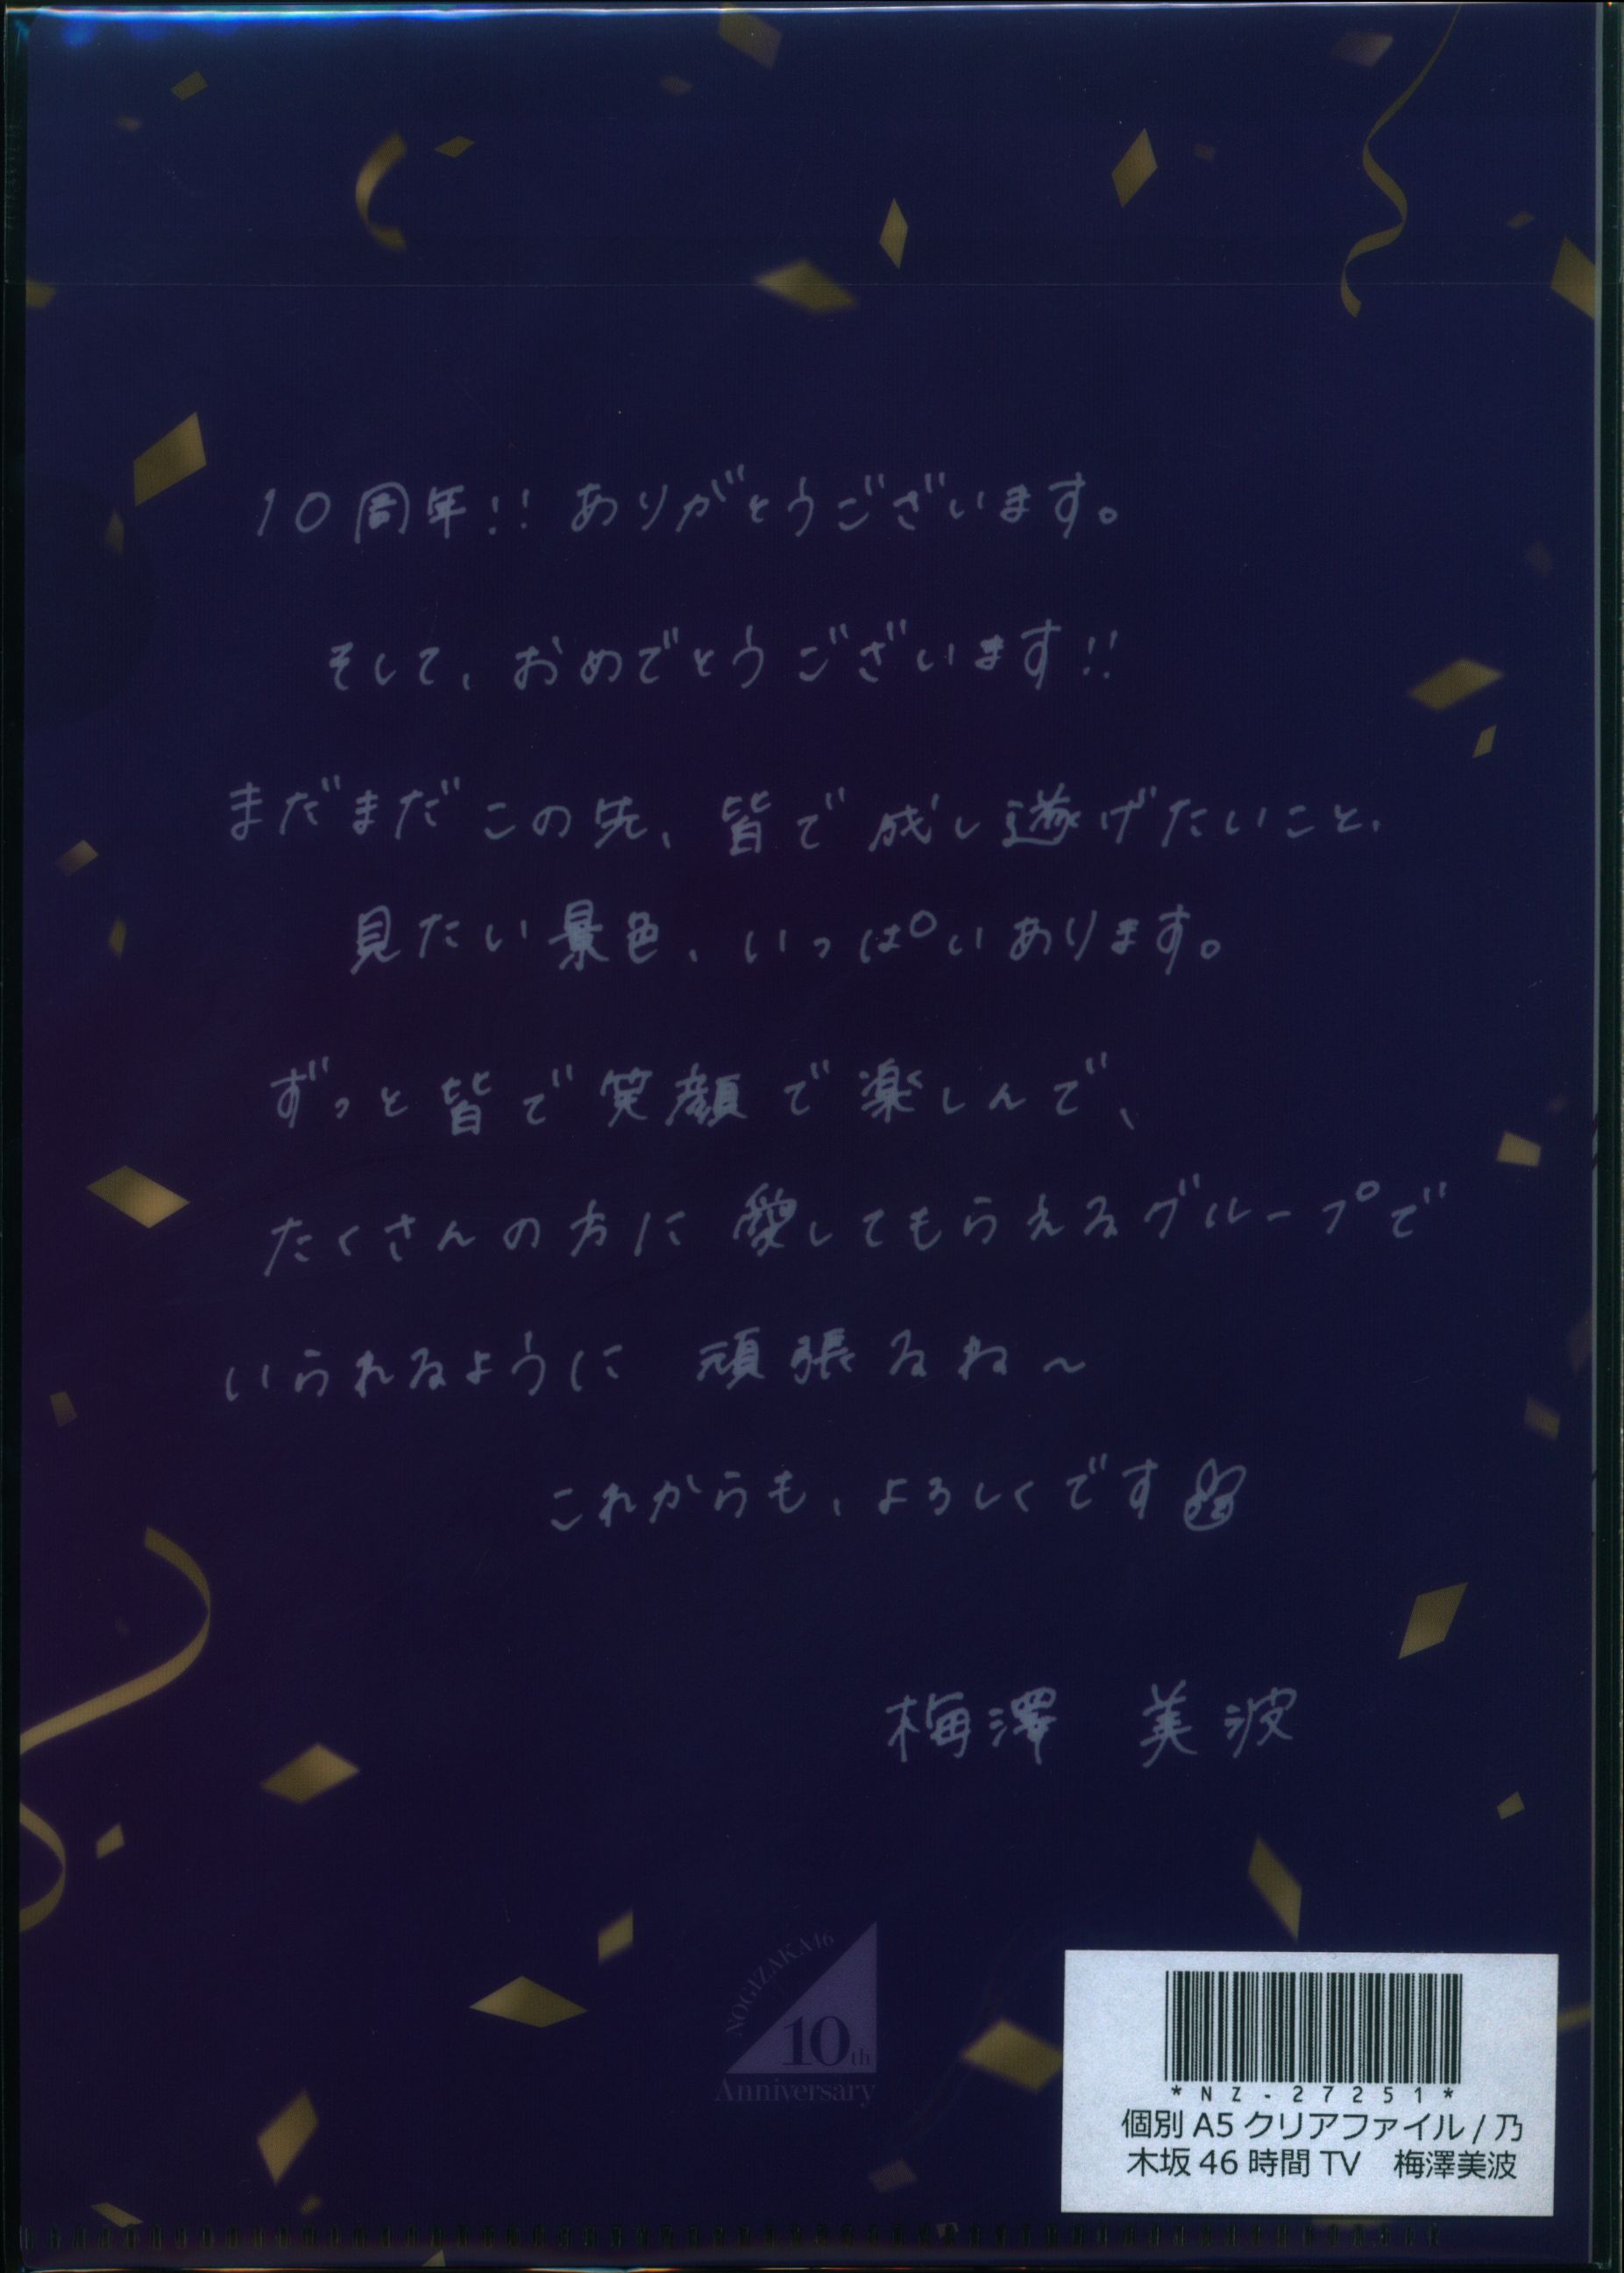 10周年!! ありがとうございます。
そして、おめでとうございます!!
まだまだこの先、皆で成し遂げたいこと、
見たい景色、いっぱいあります。
ずっと皆で笑顔で楽しんで、
たくさんの方に愛してもらえるグループで
いられるように 頑張るね〜
これからも、よろしくです
梅澤 美波
NOGIZAKA46
10th
Anniversary
*NZ-27251*
個別 A5 クリアファイル / 乃
木坂 46 時間 TV 梅澤美波